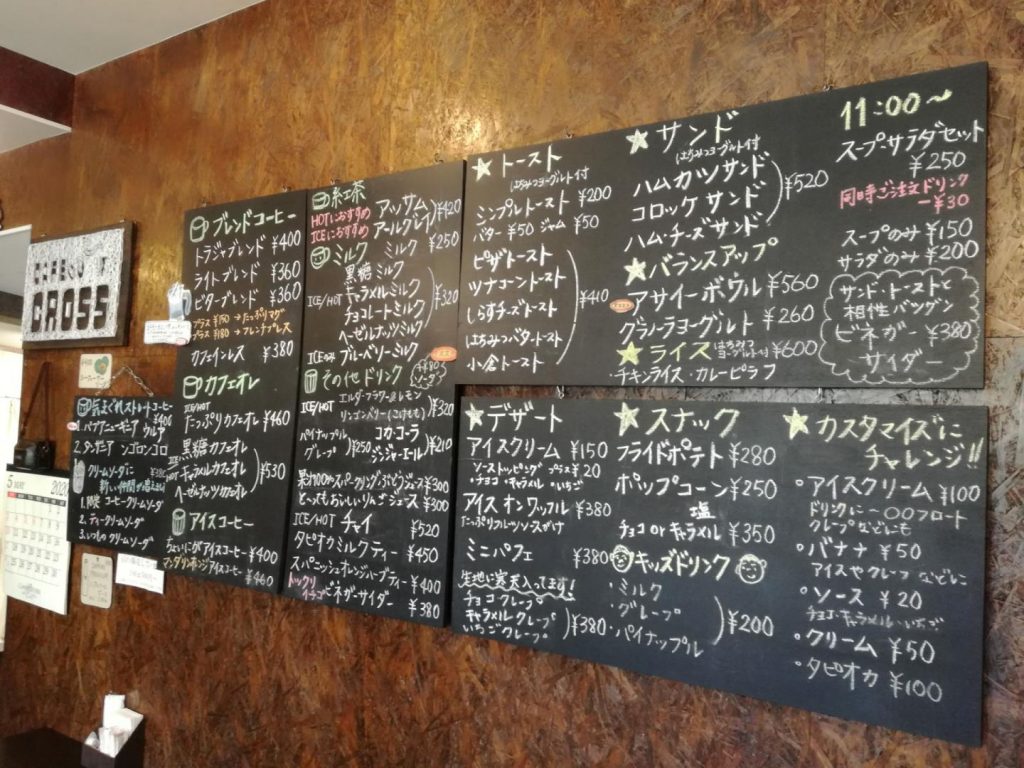 CROSS
5 MAY 2020
気まぐれストレートコーヒー
¥400
1. パプアニューギニア ウルア
2. タンザニア シンゴンコロ
クリームソーダに
新しい仲間が増えました
1. コーヒークリームソーダ
2. ティークリームソーダ
3. いつもの クリームソーダ
ブレンドコーヒー
トラジャブレンド ¥400
ライトブレンド ¥360
ビターブレンド ¥360
プラス ¥150 → たっぷりマグ
プラス ¥180 → フレンチプレス
カフェインレス ¥380
カフェオレ
ICE/HOT
たっぷりカフェオレ ¥460
黒糖カフェオレ
ICE/HOT
キャラメルカフェオレ
ヘーゼルナッツカフェオレ
¥530
アイスコーヒー
ちょいにがアイスコーヒー ¥400
マンダリンオレンジアイスコーヒー ¥460
紅茶
HOTにおすすめ アッサム
ICEにおすすめ アールグレイ
¥420
ミルク ミルク ¥250
黒糖ミルク
ICE/HOT キャラメルミルク
チョコレートミルク
ヘーゼルナッツミルク
¥320
ICEのみ ブルーベリーミルク
その他ドリンク
ソーダ
ICE/HOT エルダーフラワー&レモン
リンゴンベリー(こけもも)
¥320
パイナップル
グレープ
¥250
コカ・コーラ
ジンジャエール
¥210
果汁100%スパークリングぶどうジュース ¥300
とってもおいしいりんごジュース ¥300
ICE/HOT チャイ ¥520
タピオカミルクティー ¥450
スパニッシュオレンジハーブティー ¥400
イチゴ ビネガーサイダー ¥380
トースト
はちみつヨーグルト付
シンプルトースト ¥200
バター ¥50 ジャム ¥50
ピザトースト
ツナコーントースト
しらすチーズトースト
はちみつバタートースト
小倉トースト
¥410
サンド
はちみつヨーグルト付
ハムカツサンド
コロッケサンド
ハム・チーズサンド
¥520
バランスアップ
アサイーボウル ¥560
グラノーラヨーグルト ¥260
ライス はちみつヨーグルト付 ¥600
・チキンライス ・カレーピラフ
11:00〜
スープサラダセット
¥250
同時ご注文ドリンク
ー¥30
スープのみ ¥150
サラダのみ ¥200
サンド・トーストと
相性バツグン
ビネガー ¥380
サイダー
デザート
アイスクリーム ¥150
ソーストッピング プラス¥20
・チョコ・キャラメル・いちご
アイス オン ワッフル ¥380
たっぷりフルーツソースがけ
ミニパフェ ¥380
生地に寒天入ってます!
チョコクレープ
キャラメルクレープ
いちごクレープ
¥380
スナック
フライドポテト ¥280
ポップコーン ¥250
塩
チョコ or キャラメル ¥350
キッズドリンク
・ミルク
・グレープ
・パイナップル
¥200
カスタマイズに
チャレンジ!!
アイスクリーム ¥100
ドリンクに→〇〇フロート
クレープなどにも
バナナ ¥50
アイスやクレープなどに
ソース ¥20
チョコ・キャラメル・いちご
クリーム ¥50
タピオカ ¥100